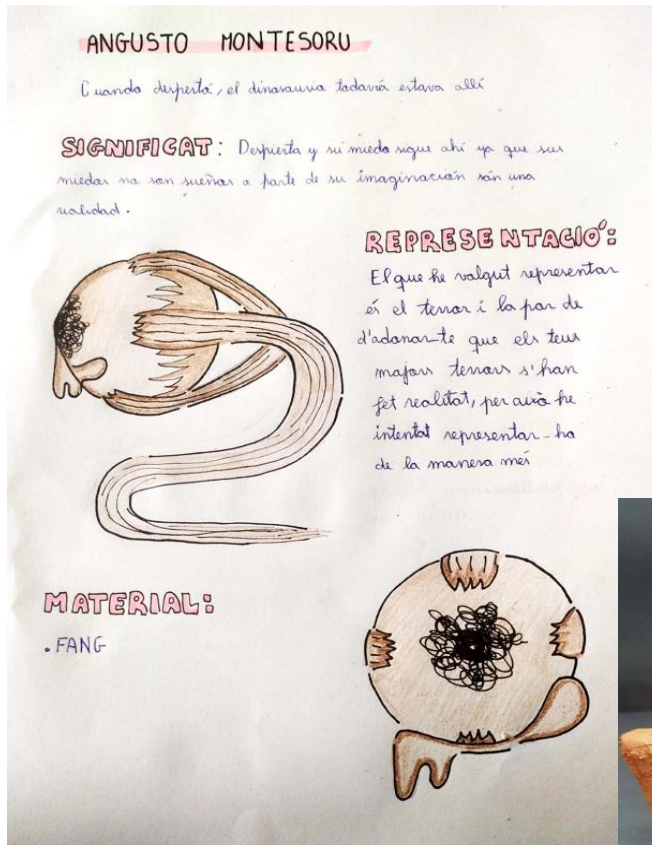 ANGUSTO MONTESORU
Cuando despertó, el dinosauria todavía estava allí
SIGNIFICAT: Despierta y su miedo sigue ahí ya que sus
miedos no son sueños o parte de su imaginación són una
realidad.
REPRESENTACIÓ:
El que he volgut representar
és el terror i la por de
d'adonar-te que els teus
majors terrors s'han
fet realitat, per això he
intentat representar-ho
de la manera més
MATERIAL:
• FANG